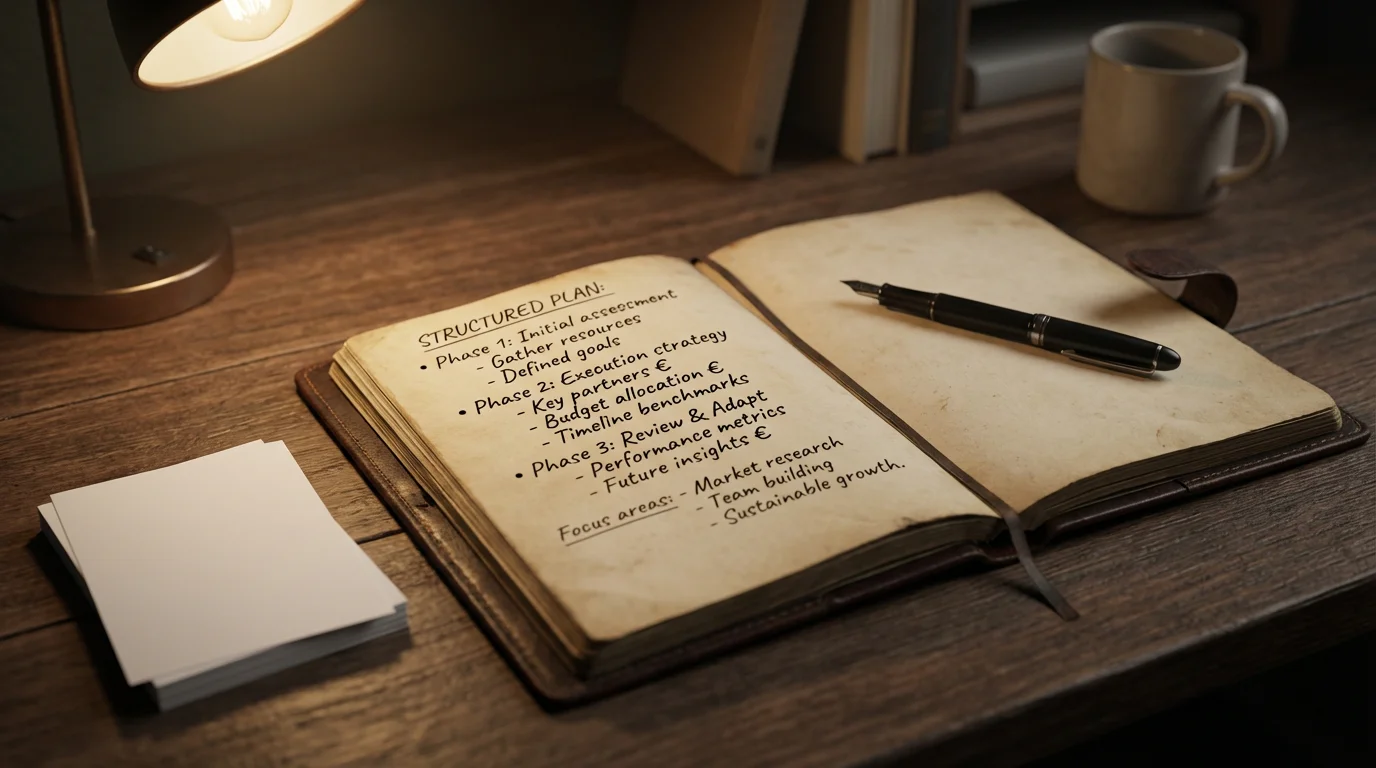 STRUCTURED PLAN:
• Phase 1: Initial assesment
- Gather resources
- Defined goals
• Phase 2: Execution ctrategy
- Key partners €
- Budget allocation €
- Timeline benchmarks
• Phase 3: Review & Adapt
- Performance metrics
- Future insights €
Focus areas: - Market research
- Team building
- Sustainable growth.